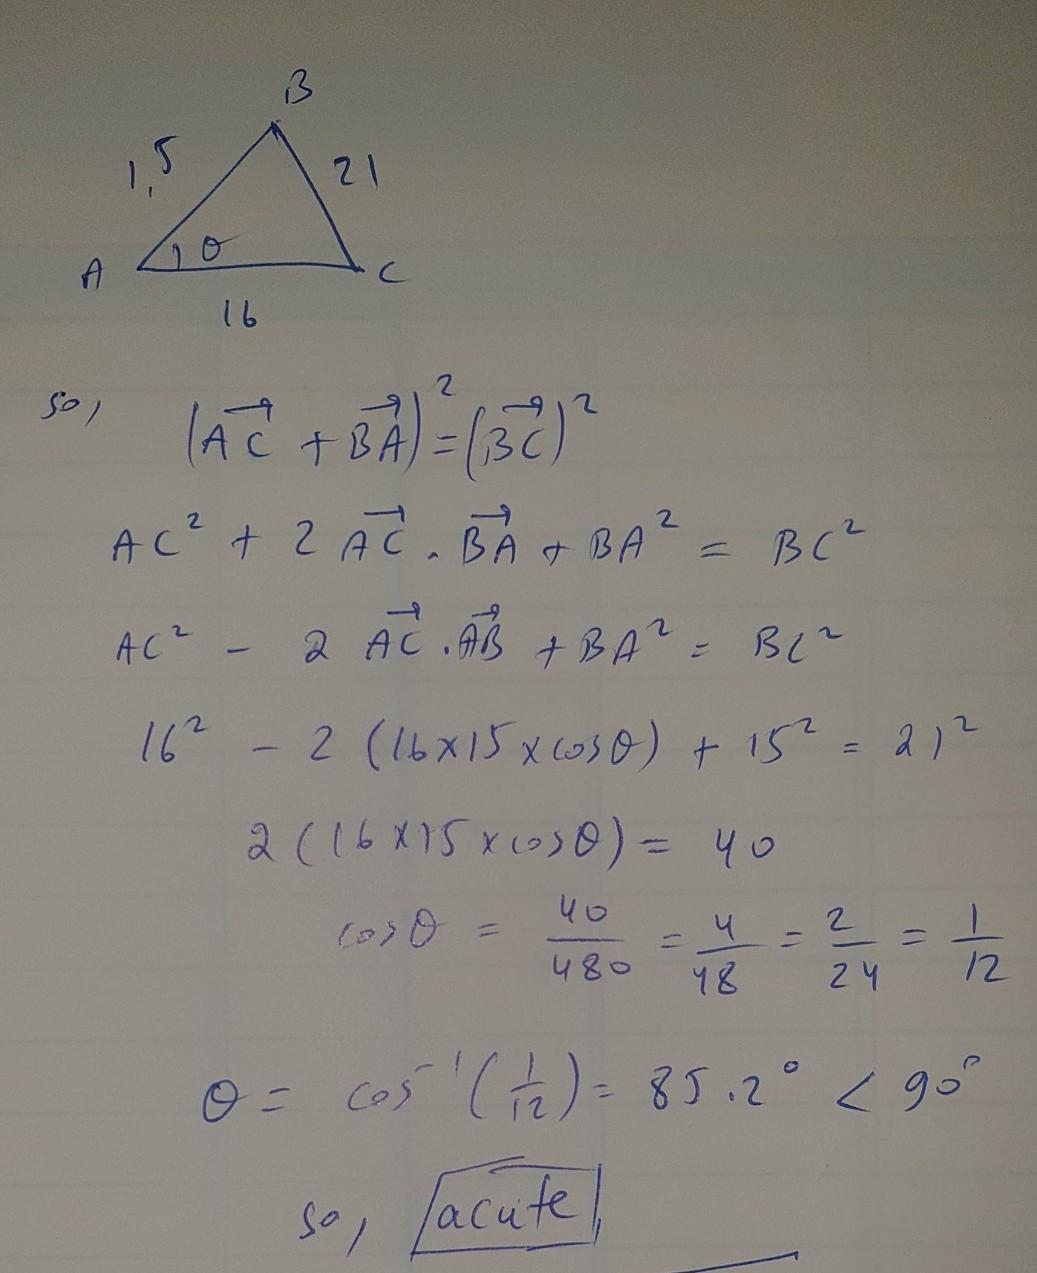 B
1,5 21
A θ C
16
so, (AC + BA)² = (BC)²
AC² + 2 AC . BA + BA² = BC²
AC² - 2 AC . AB + BA² = BC²
16² - 2 (16×15×cosθ) + 15² = 21²
2 (16×15×cosθ) = 40
cosθ = 40/480 = 4/48 = 2/24 = 1/12
θ = cos⁻¹(1/12) = 85.2° < 90°
so, acute